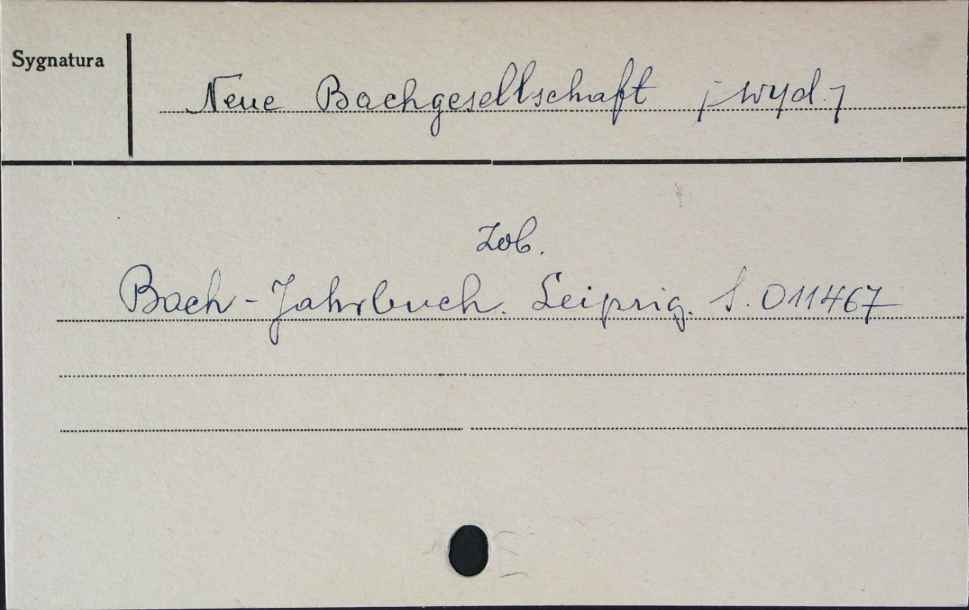 Sygnatura
Neue Bachgesellschaft [wyd.]
Zob.
Bach-Jahrbuch. Leipzig. S. 011467